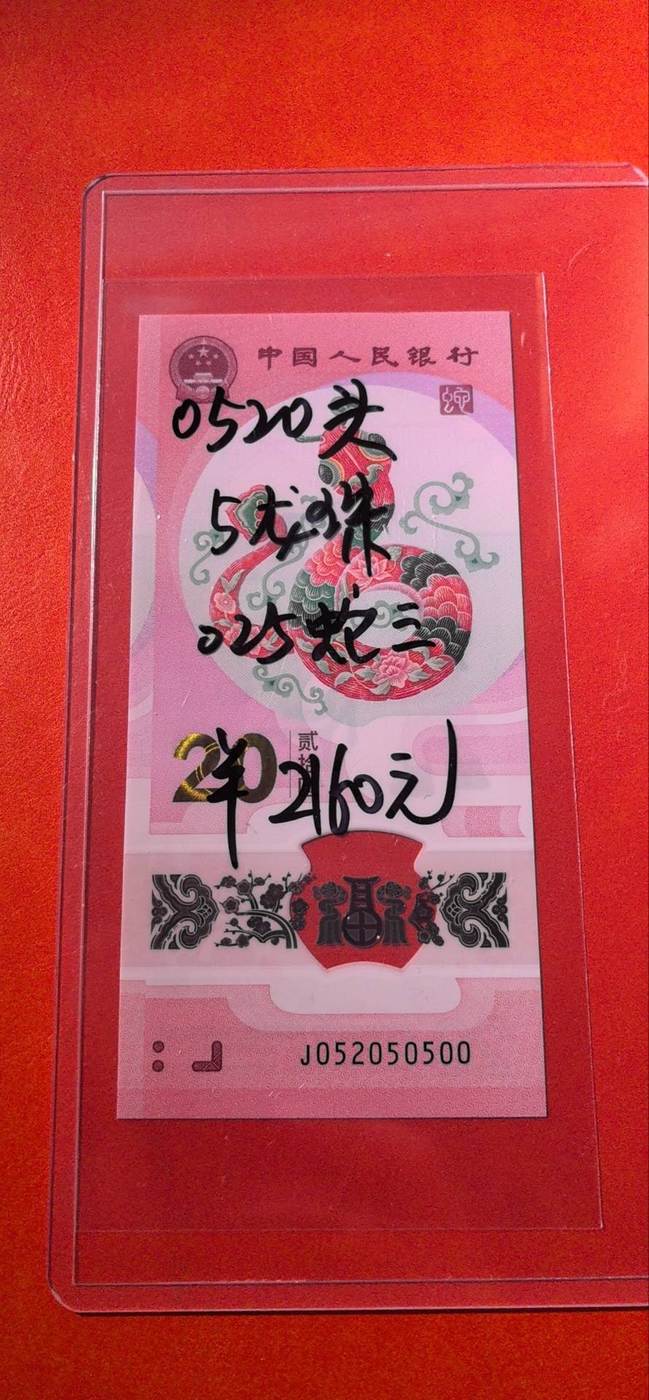 中国人民银行
0520头
5尤珠
025蛇三
20
贰拾
半2160元
J052050500